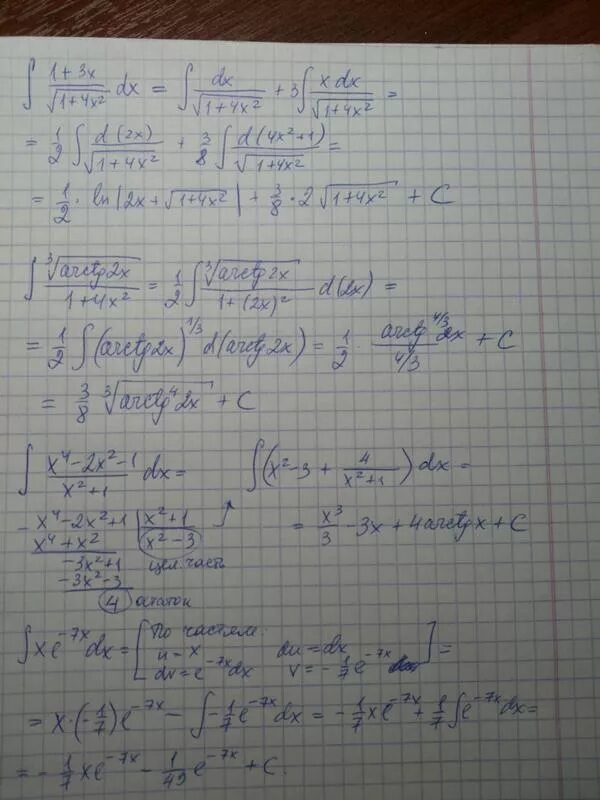 ∫ (1+3x)/√(1+4x²) dx = ∫ dx/√(1+4x²) + 3∫ x dx/√(1+4x²) =
= 1/2 ∫ d(2x)/√(1+4x²) + 3/8 ∫ d(4x²+1)/√(1+4x²) =
= 1/2 · ln|2x+√(1+4x²)| + 3/8 · 2√(1+4x²) + C
∫ ∛(arctg2x)/(1+4x²) = 1/2 ∫ ∛(arctg2x)/(1+(2x)²) d(2x) =
= 1/2 ∫ (arctg2x)^(1/3) d(arctg2x) = 1/2 · arctg^(4/3)2x/(4/3) + C
= 3/8 ∛(arctg⁴2x) + C
∫ (x⁴-2x²-1)/(x²+1) dx = ∫(x²-3 + 4/(x²+1))dx =
- x⁴-2x²+1 | x²+1
x⁴+x² | x²-3 = x³/3 - 3x + 4arctgx + C
-3x²+1 цел. часть
-3x²-3
4 остаток
∫xe^(-7x)dx = [По частям:
u=x du=dx
dv=e^(-7x)dx v=-1/7 e^(-7x)] =
= x·(-1/7)e^(-7x) - ∫-1/7 e^(-7x)dx = -1/7 xe^(-7x) + 1/7 ∫e^(-7x)dx =
= -1/7 xe^(-7x) - 1/49 e^(-7x) + C.